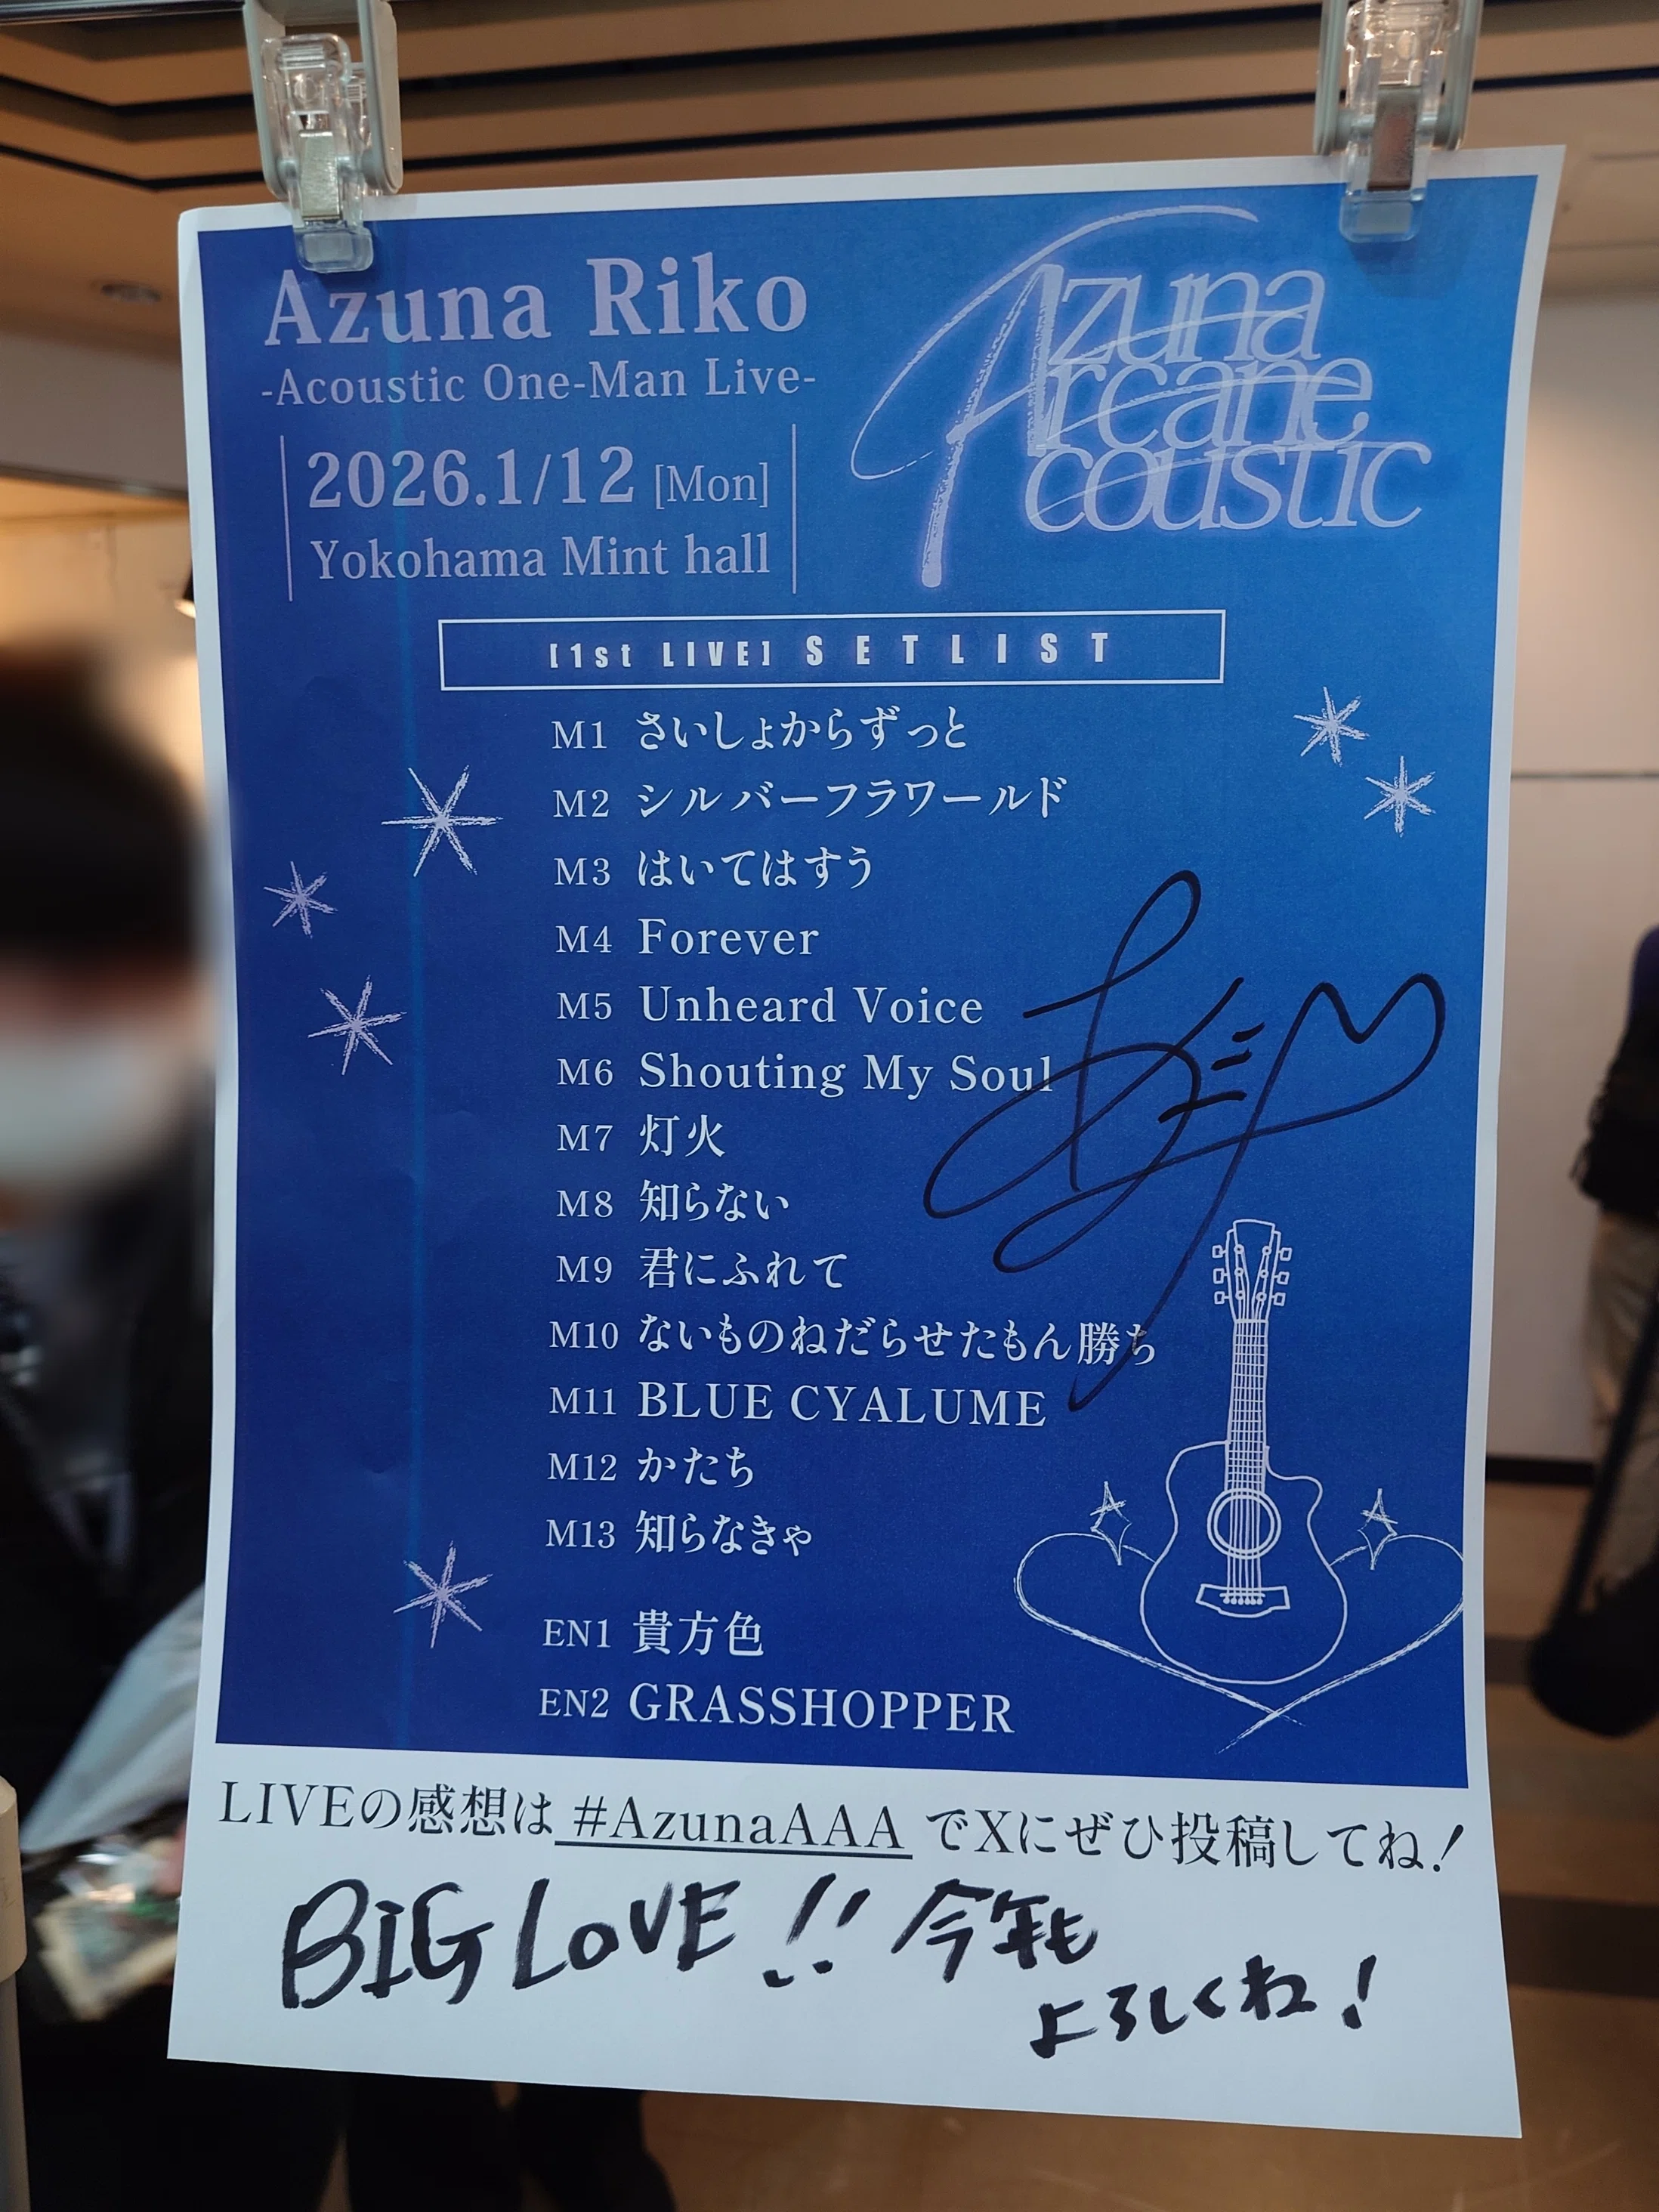 Azuna Riko
-Acoustic One-Man Live-
2026.1/12 [Mon]
Yokohama Mint hall
Azuna
Arcane
Acoustic
[1st LIVE] SETLIST
M1 さいしょからずっと
M2 シルバーフラワールド
M3 はいてはすう
M4 Forever
M5 Unheard Voice
M6 Shouting My Soul
M7 灯火
M8 知らない
M9 君にふれて
M10 ないものねだらせたもん勝ち
M11 BLUE CYALUME
M12 かたち
M13 知らなきゃ
EN1 貴方色
EN2 GRASSHOPPER
LIVEの感想は #AzunaAAA でXにぜひ投稿してね!
BIG LOVE!! 今年も
よろしくね!